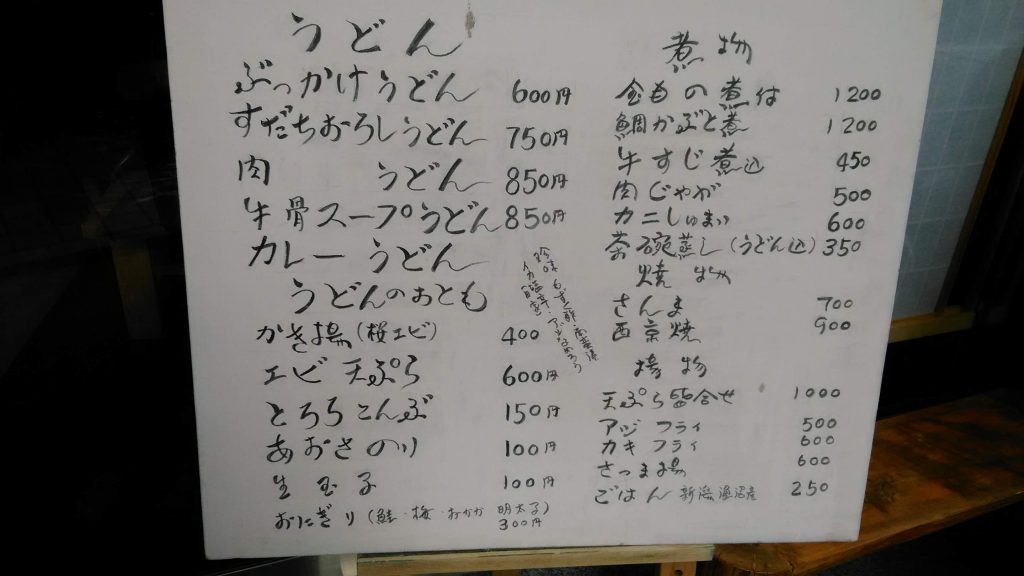 うどん
ぶっかけうどん 600円
すだちおろしうどん 750円
肉 うどん 850円
牛骨スープうどん 850円
カレーうどん
うどんのおとも
かき揚(桜エビ) 400
エビ天ぷら 600円
とろろこんぶ 150円
あおさのり 100円
生玉子 100円
おにぎり(鮭・梅・おかか 明太子)
300円
珍味も
イカ塩辛・アジなめろう
煮物
金もの煮付 1200
鯛かぶと煮 1200
牛すじ煮込 450
肉じゃが 500
カニしゅまい 600
茶碗蒸し(うどん込) 350
焼物
さんま 700
西京焼 900
揚物
天ぷら盛合せ 1000
アジフライ 500
カキフライ 600
さつま揚 600
ごはん 新潟魚沼産 250